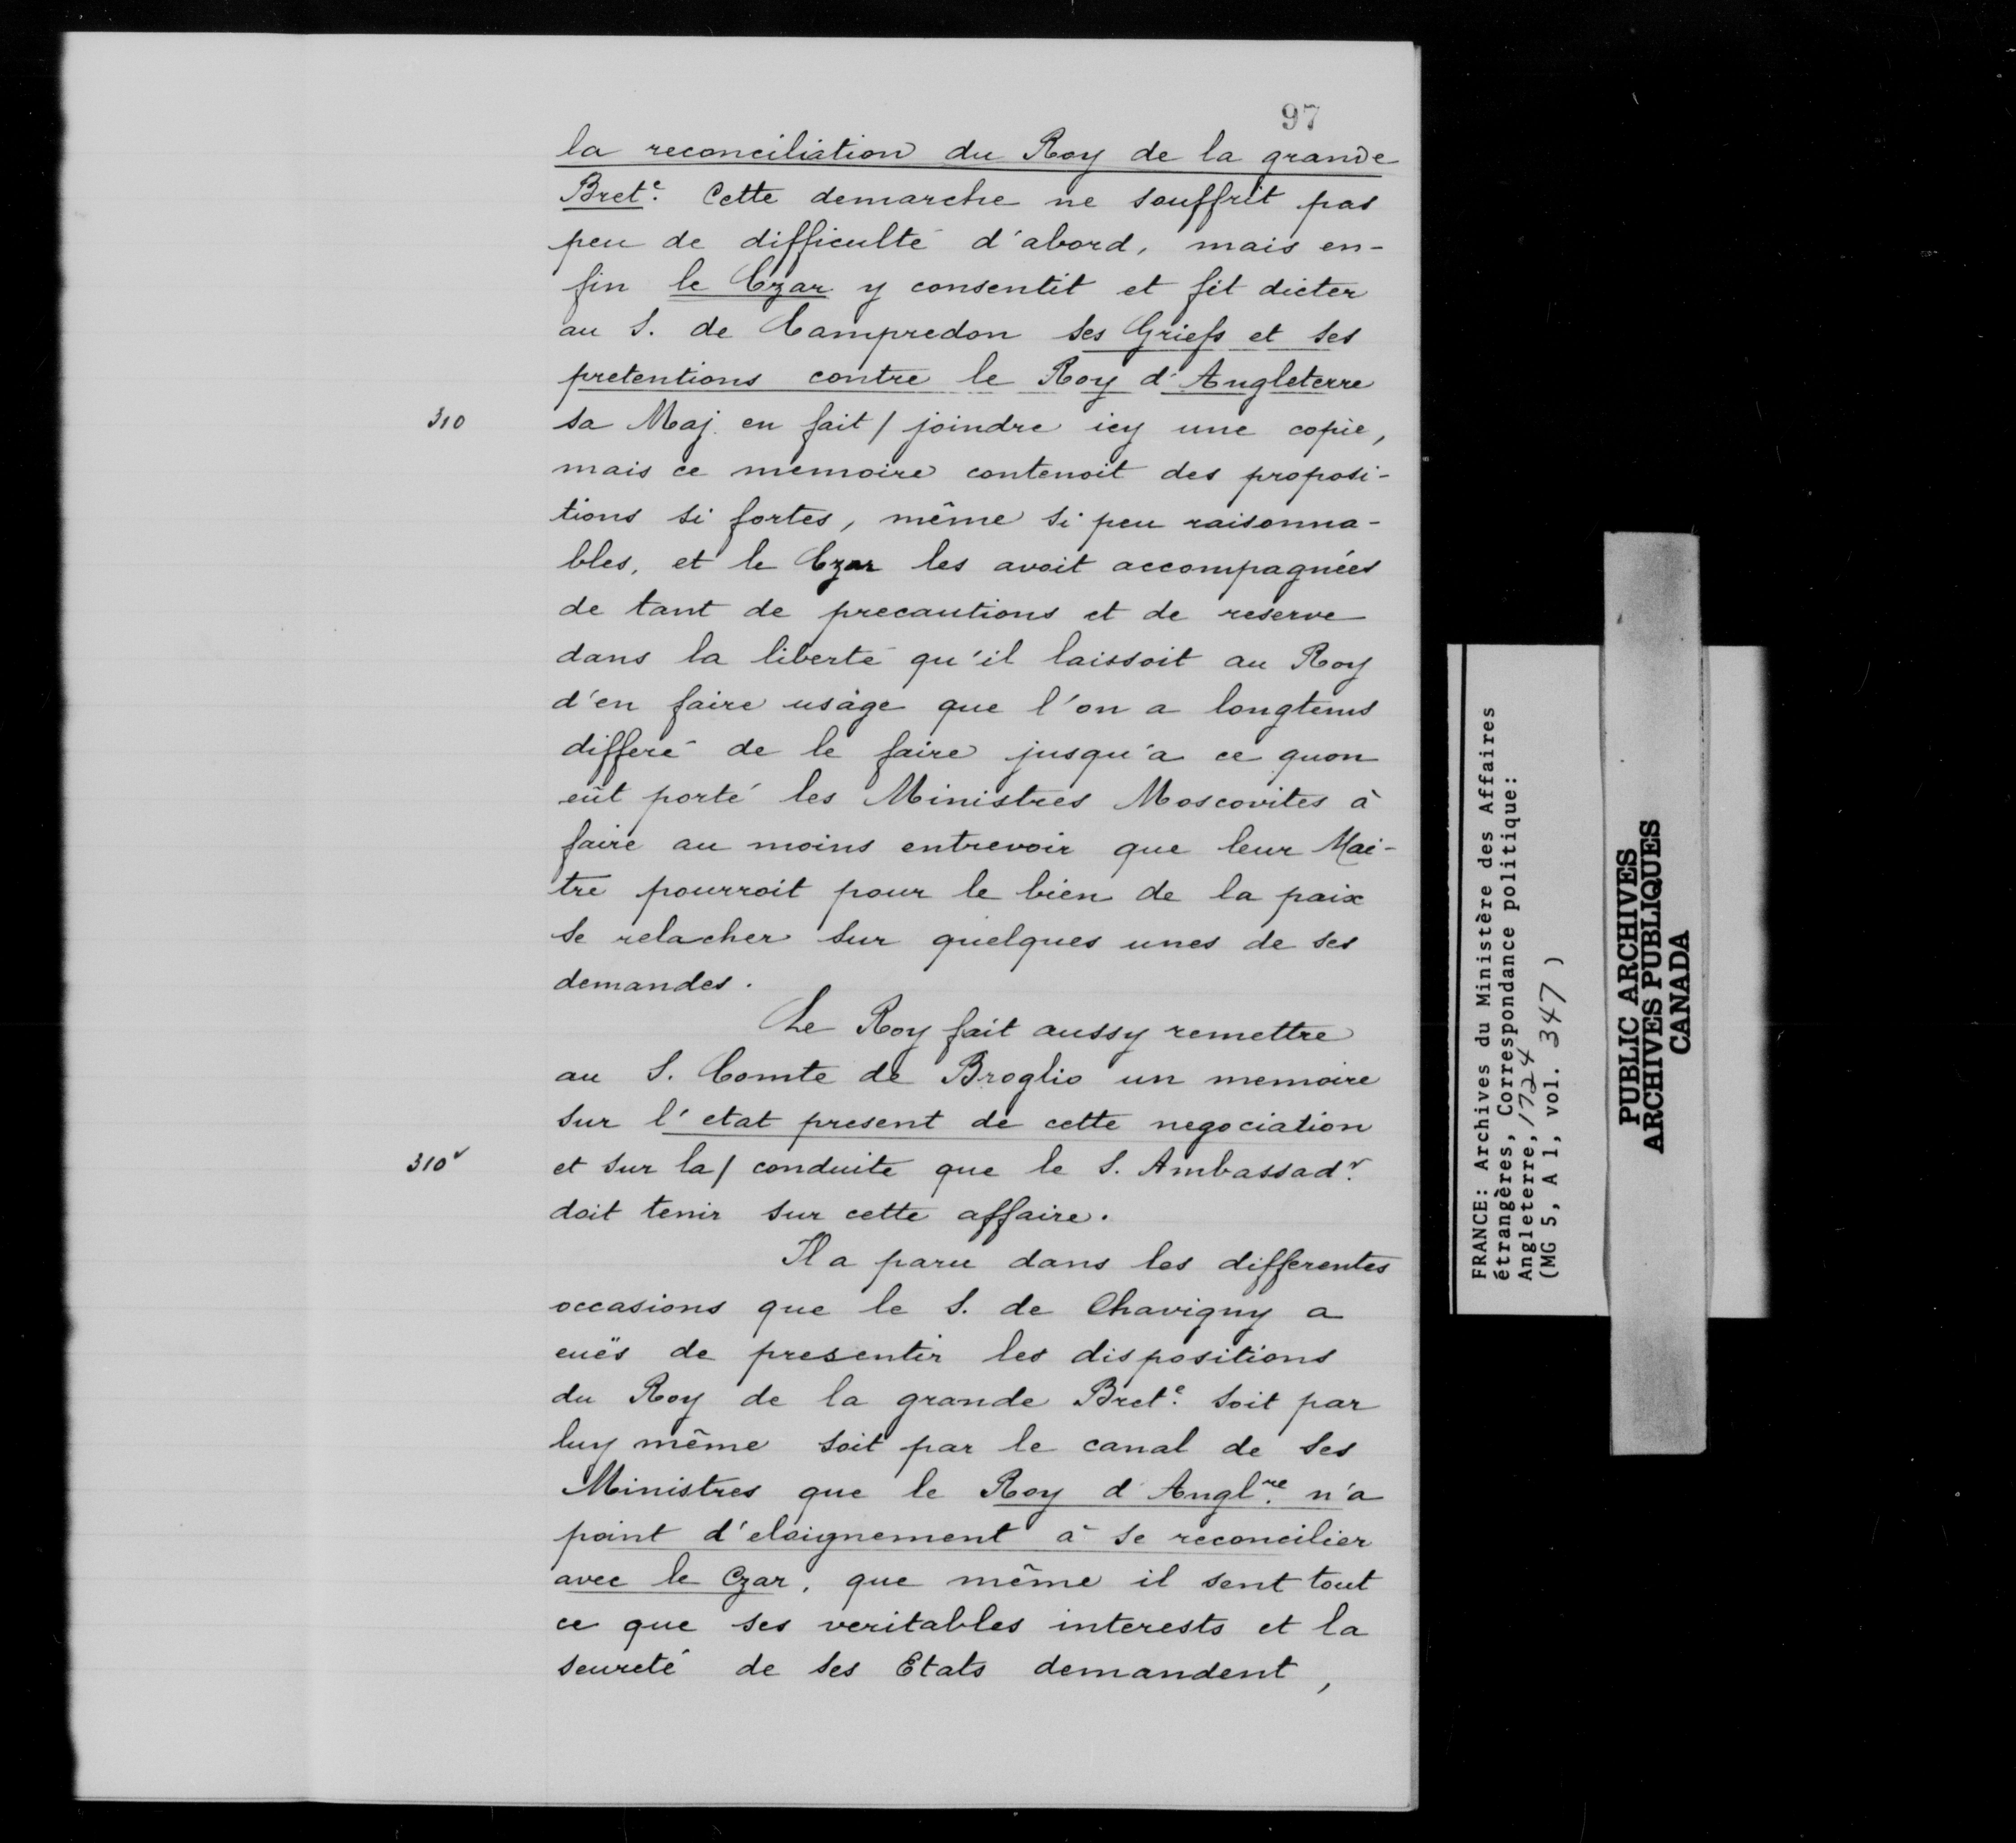 97
la reconciliation du Roy de la grande
Bret.e Cette demarche ne souffrit pas
peu de difficulté d'abord, mais en-
fin le Czar y consentit et fit dicter
au S. de Campredon ses Griefs et ses
pretentions contre le Roy d'Angleterre
310 sa Maj. en fait / joindre icy une copie,
mais ce memoire contenoit des proposi-
tions si fortes, même si peu raisonna-
bles, et le Czar les avoit accompagnées
de tant de precautions et de reserve
dans la liberté qu'il laissoit au Roy
d'en faire usage que l'on a longtems
differé de le faire jusqu'a ce quon
eût porté les Ministres Moscovites à
faire au moins entrevoir que leur Mai-
tre pourroit pour le bien de la paix
se relacher sur quelques unes de ses
demandes.
Le Roy fait aussy remettre
au S. Comte de Broglio un memoire
sur l'etat present de cette negociation
310v et sur la / conduite que le S. Ambassad.r
doit tenir sur cette affaire.
Il a paru dans les differentes
occasions que le S. de Chavigny a
euës de presentir les dispositions
du Roy de la grande Bret.e soit par
luy même soit par le canal de ses
Ministres que le Roy d'Angl.re n'a
point d'eloignement à se reconcilier
avec le Czar, que même il sent tout
ce que ses veritables interests et la
seureté de ses Etats demandent,
FRANCE: Archives du Ministère des Affaires
étrangères, Correspondance politique:
Angleterre, 1724
(MG 5, A 1, vol. 347 )
PUBLIC ARCHIVES
ARCHIVES PUBLIQUES
CANADA